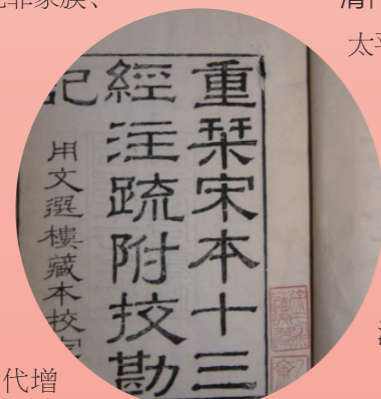 罪家族、
太平
重栞宋本十三
經注疏附挍勘
記
用文選樓藏本挍
代增